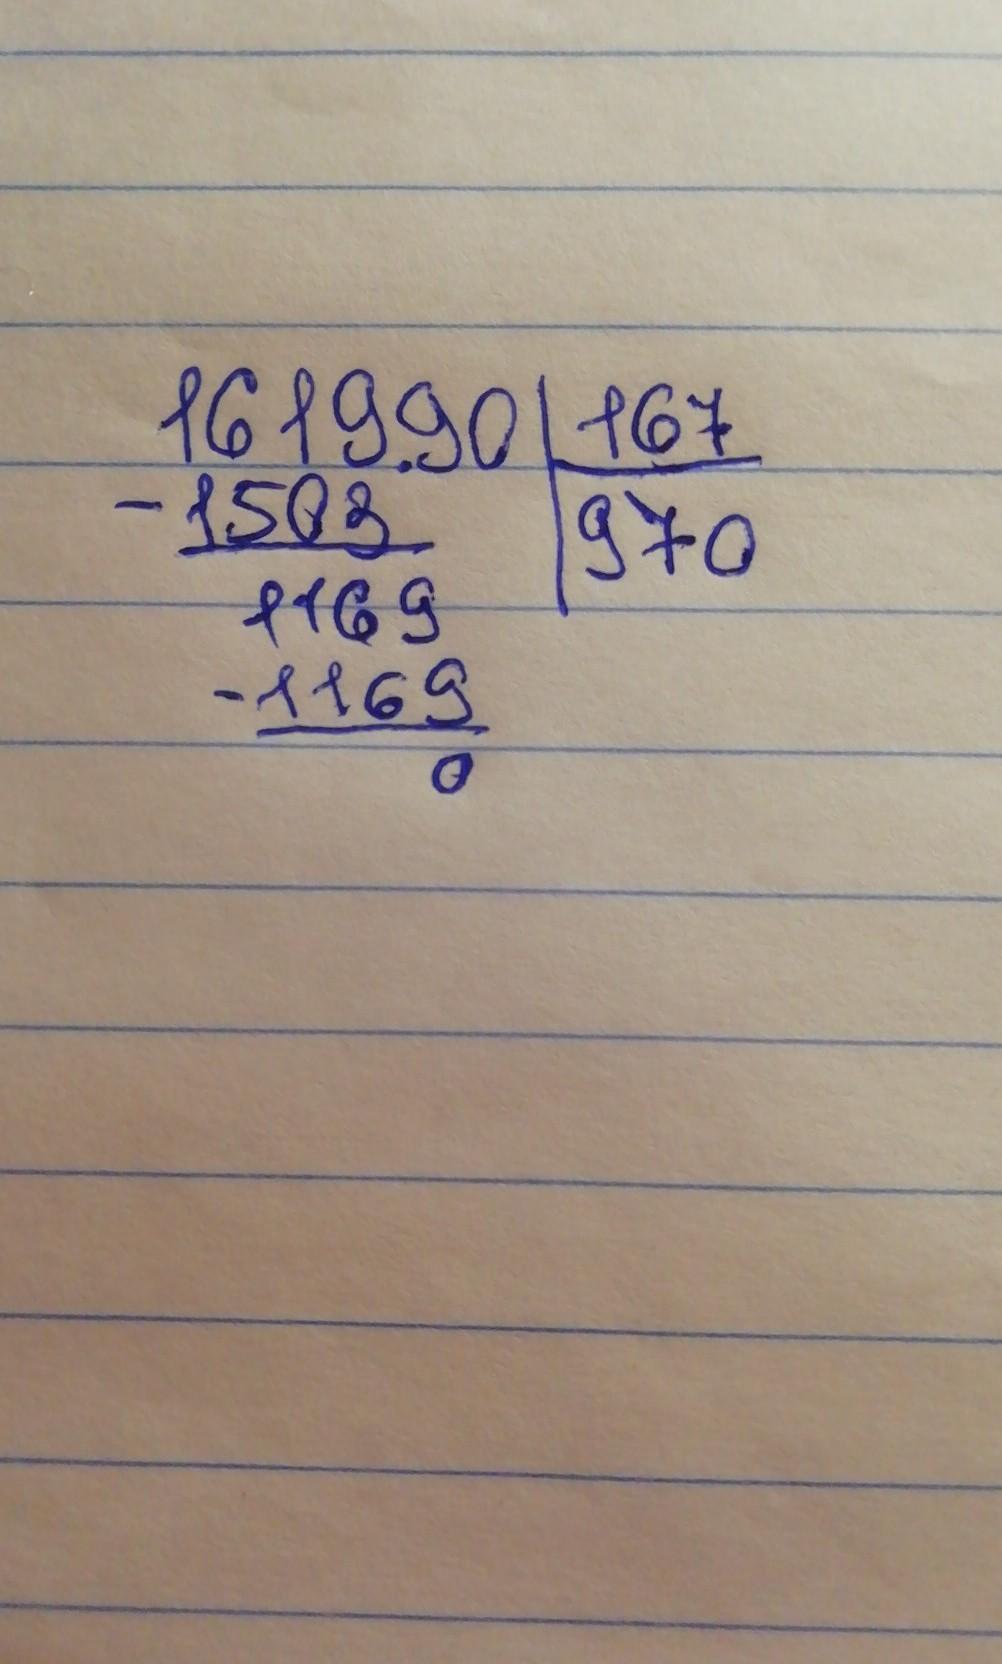 1619.90 | 167
- 1503 | 970
1169
- 1169
0